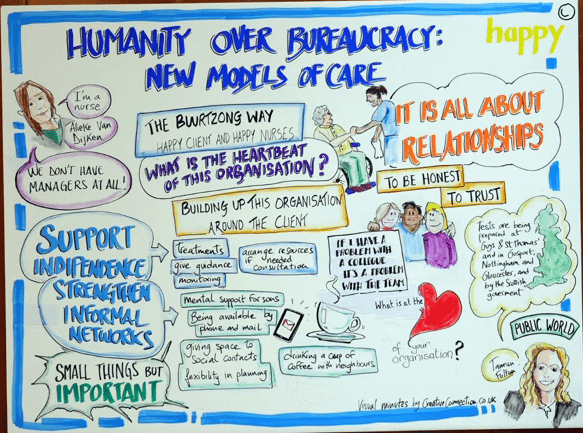 HUMANITY OVER BUREAUCRACY:
NEW MODELS OF CARE
happy
©
I'm a
nurse
Alieke Van
Dijken
WE DON'T HAVE
MANAGERS AT ALL!
THE BUURTZONG WAY
HAPPY CLIENT AND HAPPY NURSES
WHAT IS THE HEARTBEAT
OF THIS ORGANISATION?
BUILDING UP THIS ORGANISATION
AROUND THE CLIENT
IT IS ALL ABOUT
RELATIONSHIPS
TO BE HONEST
TO TRUST
SUPPORT
INDIPENDENCE
STRENGTHEN
INFORMAL
NETWORKS
SMALL THINGS BUT
IMPORTANT
treatments
give guidance
monitoring
arrange resources
if needed
consultation
Mental support for sons
Being available by
phone and mail
giving space to
social contacts
flexibility in planning
drinking a cup of
coffee with neighbours
IF I HAVE A
PROBLEM WITH
A COLLEGUE
IT'S A PROBLEM
WITH THE TEAM
What is at the
of your
organisation?
Tests are being
prepared at
Guys & St Thomas'
and in Gosport,
Nottingham and
Gloucester, and
by the Scottish
goverment
PUBLIC WORLD
Tamsin
Fulton
Visual minutes by CreativeConnection.co.uk